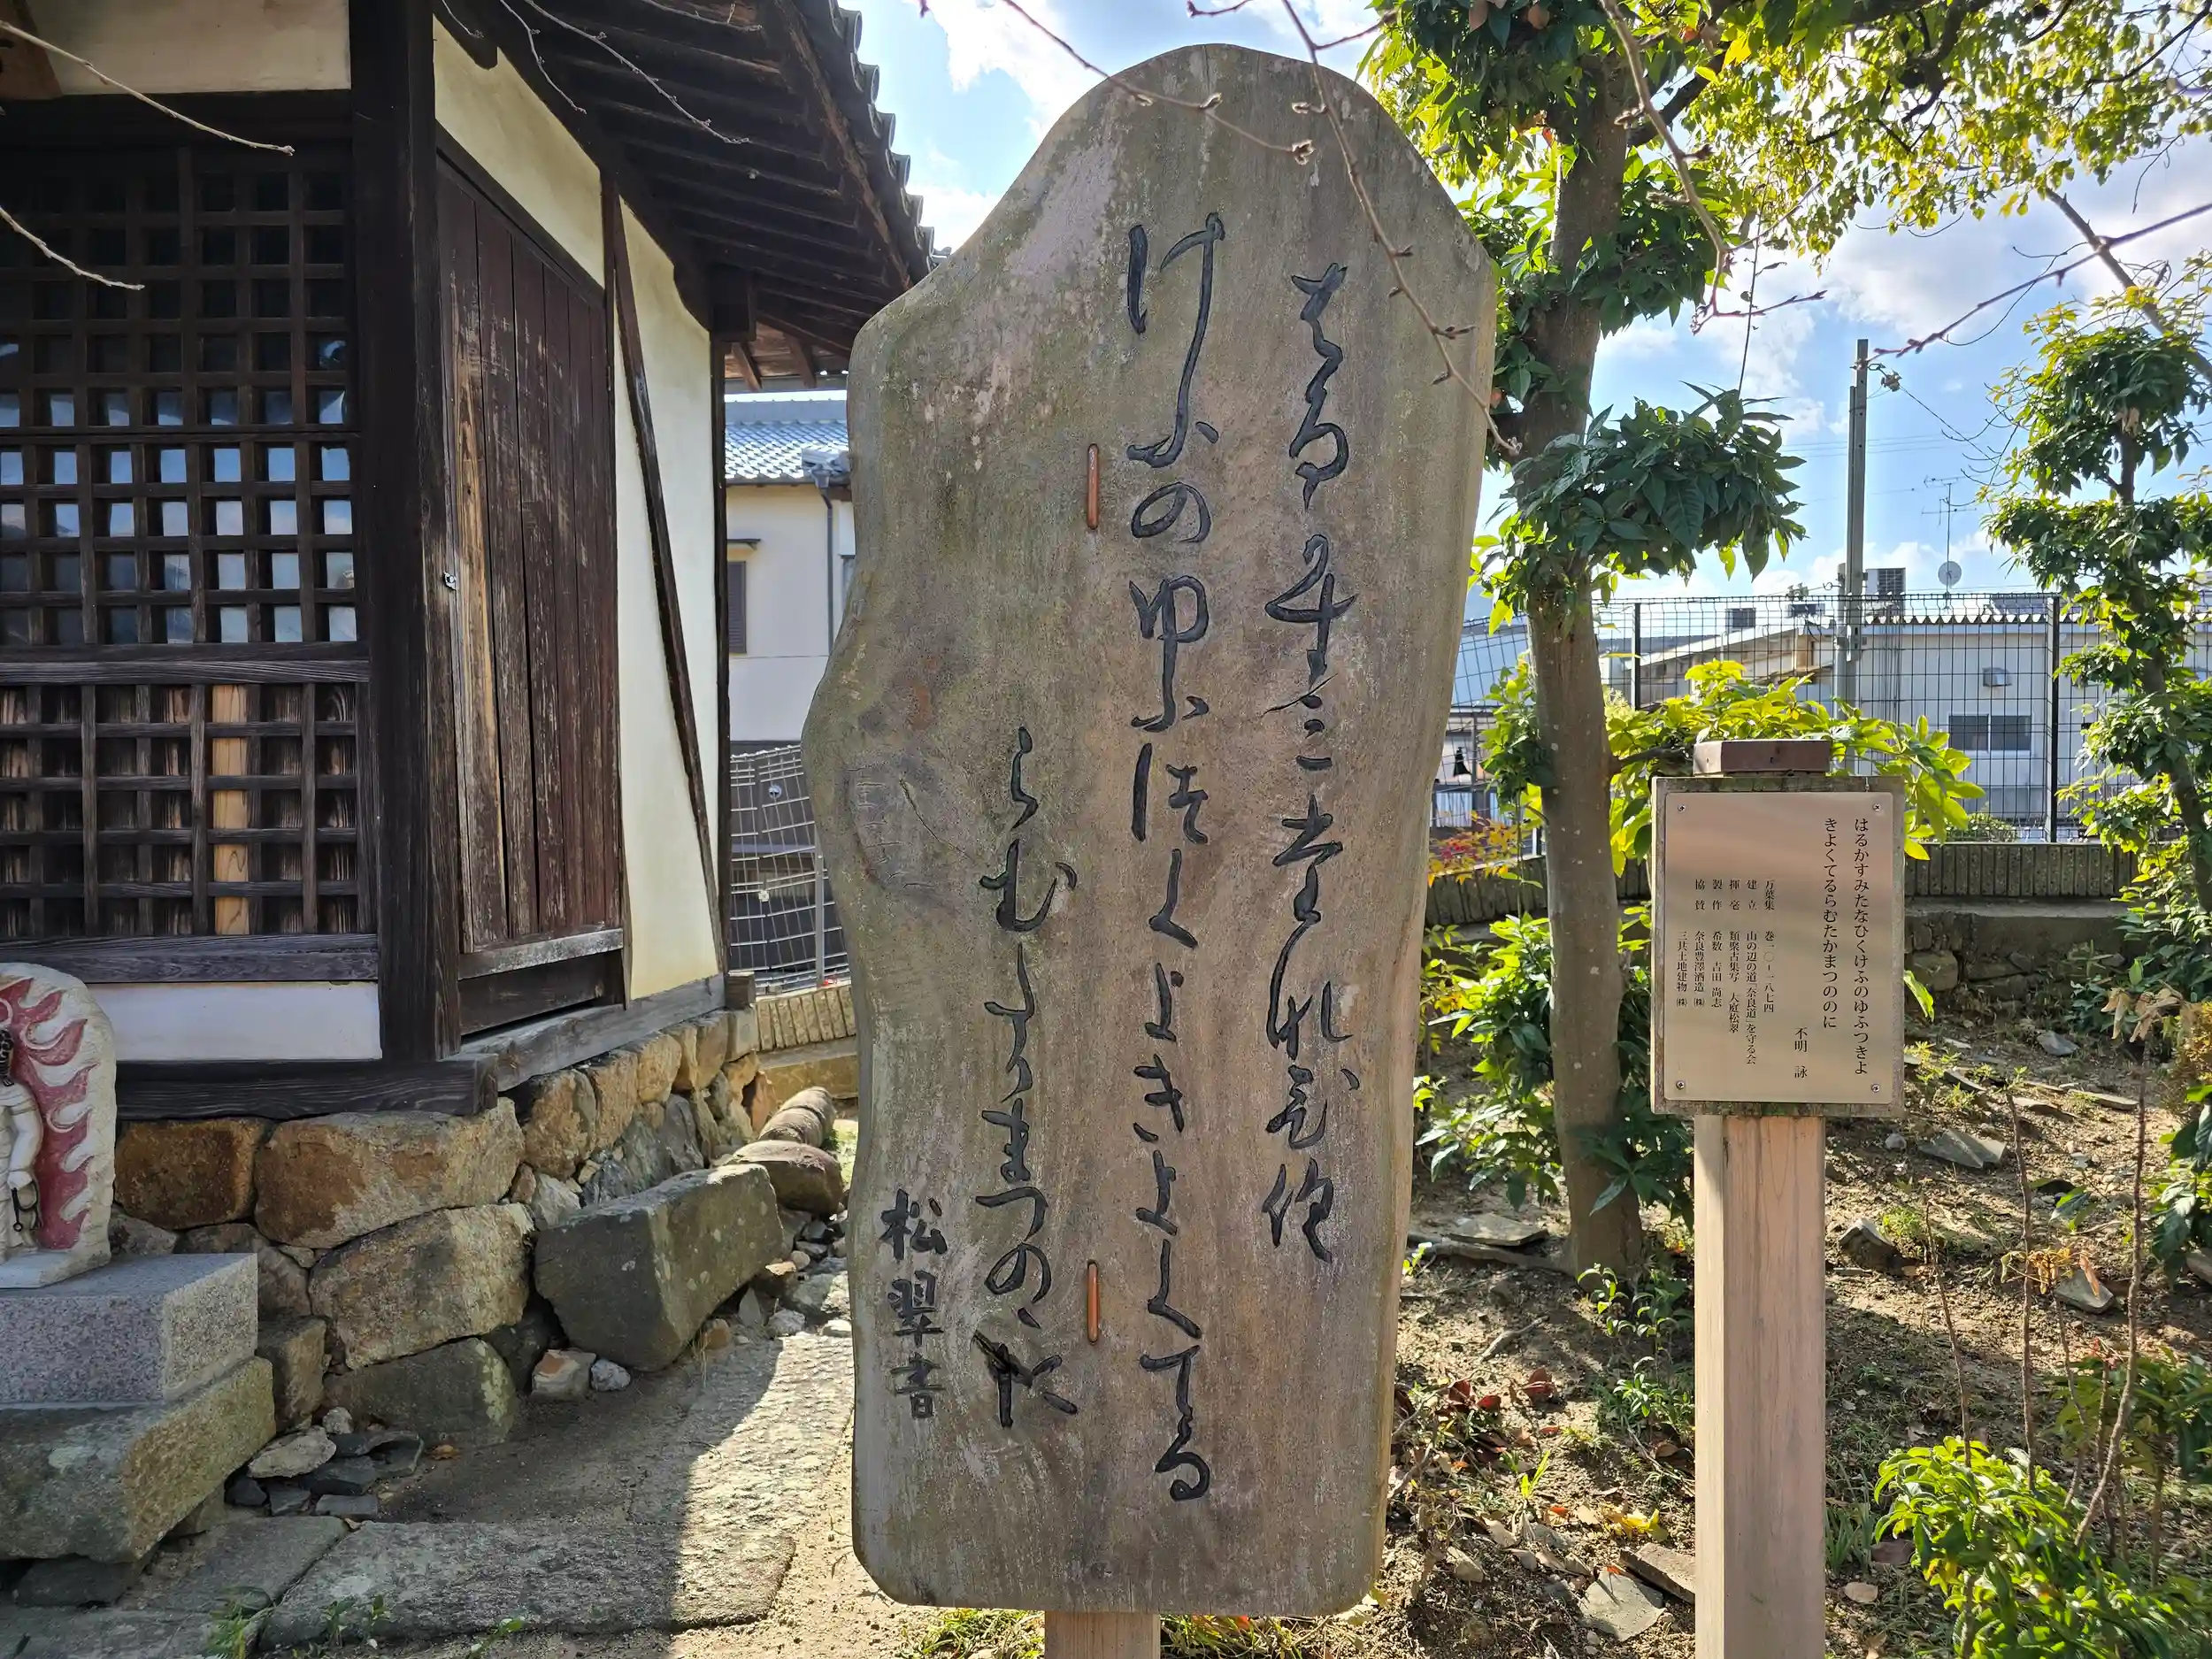 はるかすみたなひく
けふのゆふつくよきよくてる
らむたかまつのゝに
松翠書
はるかすみたなひくけふのゆふつきよ
きよくてるらむたかまつののに
不明 詠
万葉集 巻一〇-一八七四
建立 山の辺の道「奈良道」を守る会
揮毫 類聚古集写 大庭松翠
製作 希数 吉田尚志
協賛 奈良豊澤酒造㈱
三共土地建物㈱